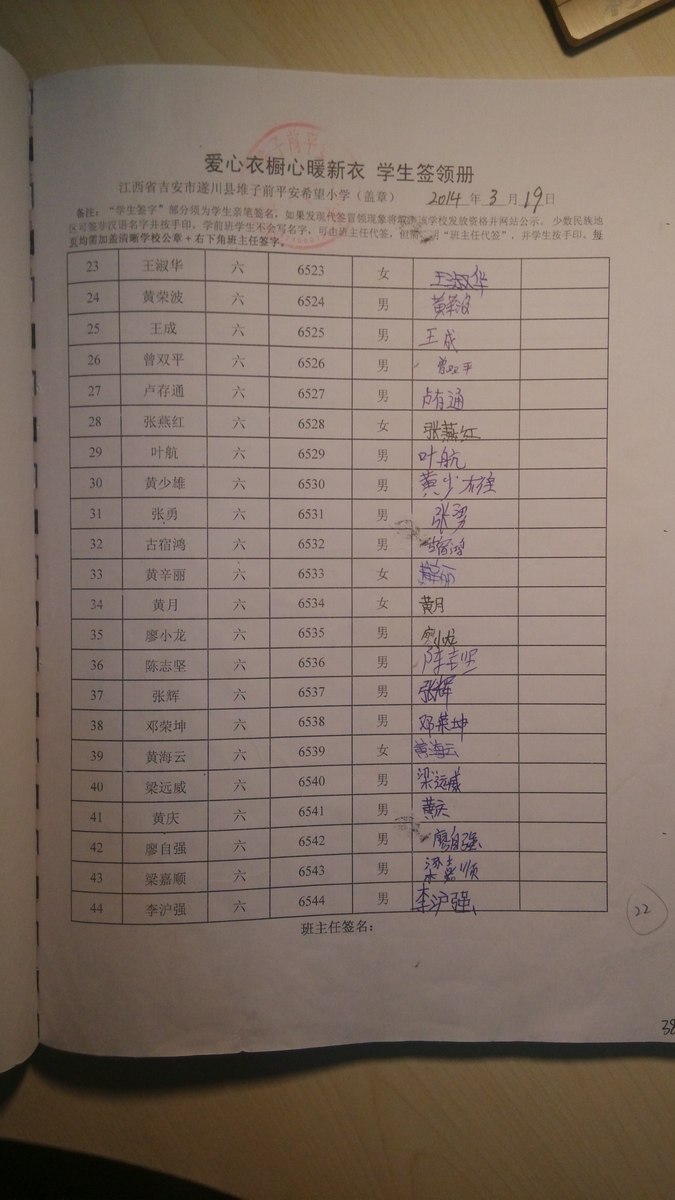 爱心衣橱心暖新衣 学生签领册
江西省吉安市遂川县堆子前平安希望小学（盖章） 2014 年 3 月 19 日
备注：“学生签字”部分须为学生亲笔签名，如果发现代签冒领现象将取消该学校发放资格并网站公示。少数民族地
区可签学汉语名字并按手印，学前班学生不会写名字，可由班主任代签，但需 明“班主任代签”，并学生按手印。每
页均需加盖清晰学校公章＋右下角班主任签字。
23 王淑华 六 6523 女 王淑华
24 黄荣波 六 6524 男 黄荣波
25 王成 六 6525 男 王成
26 曾双平 六 6526 男 曾双平
27 卢存通 六 6527 男 卢存通
28 张燕红 六 6528 女 张燕红
29 叶航 六 6529 男 叶航
30 黄少雄 六 6530 男 黄少雄
31 张勇 六 6531 男 张勇
32 古宿鸿 六 6532 男 古宿鸿
33 黄辛丽 六 6533 女 黄辛丽
34 黄月 六 6534 女 黄月
35 廖小龙 六 6535 男 廖小龙
36 陈志坚 六 6536 男 陈志坚
37 张辉 六 6537 男 张辉
38 邓荣坤 六 6538 男 邓荣坤
39 黄海云 六 6539 女 黄海云
40 梁远威 六 6540 男 梁远威
41 黄庆 六 6541 男 黄庆
42 廖自强 六 6542 男 廖自强
43 梁嘉顺 六 6543 男 梁嘉顺
44 李沪强 六 6544 男 李沪强
22
班主任签名：
38